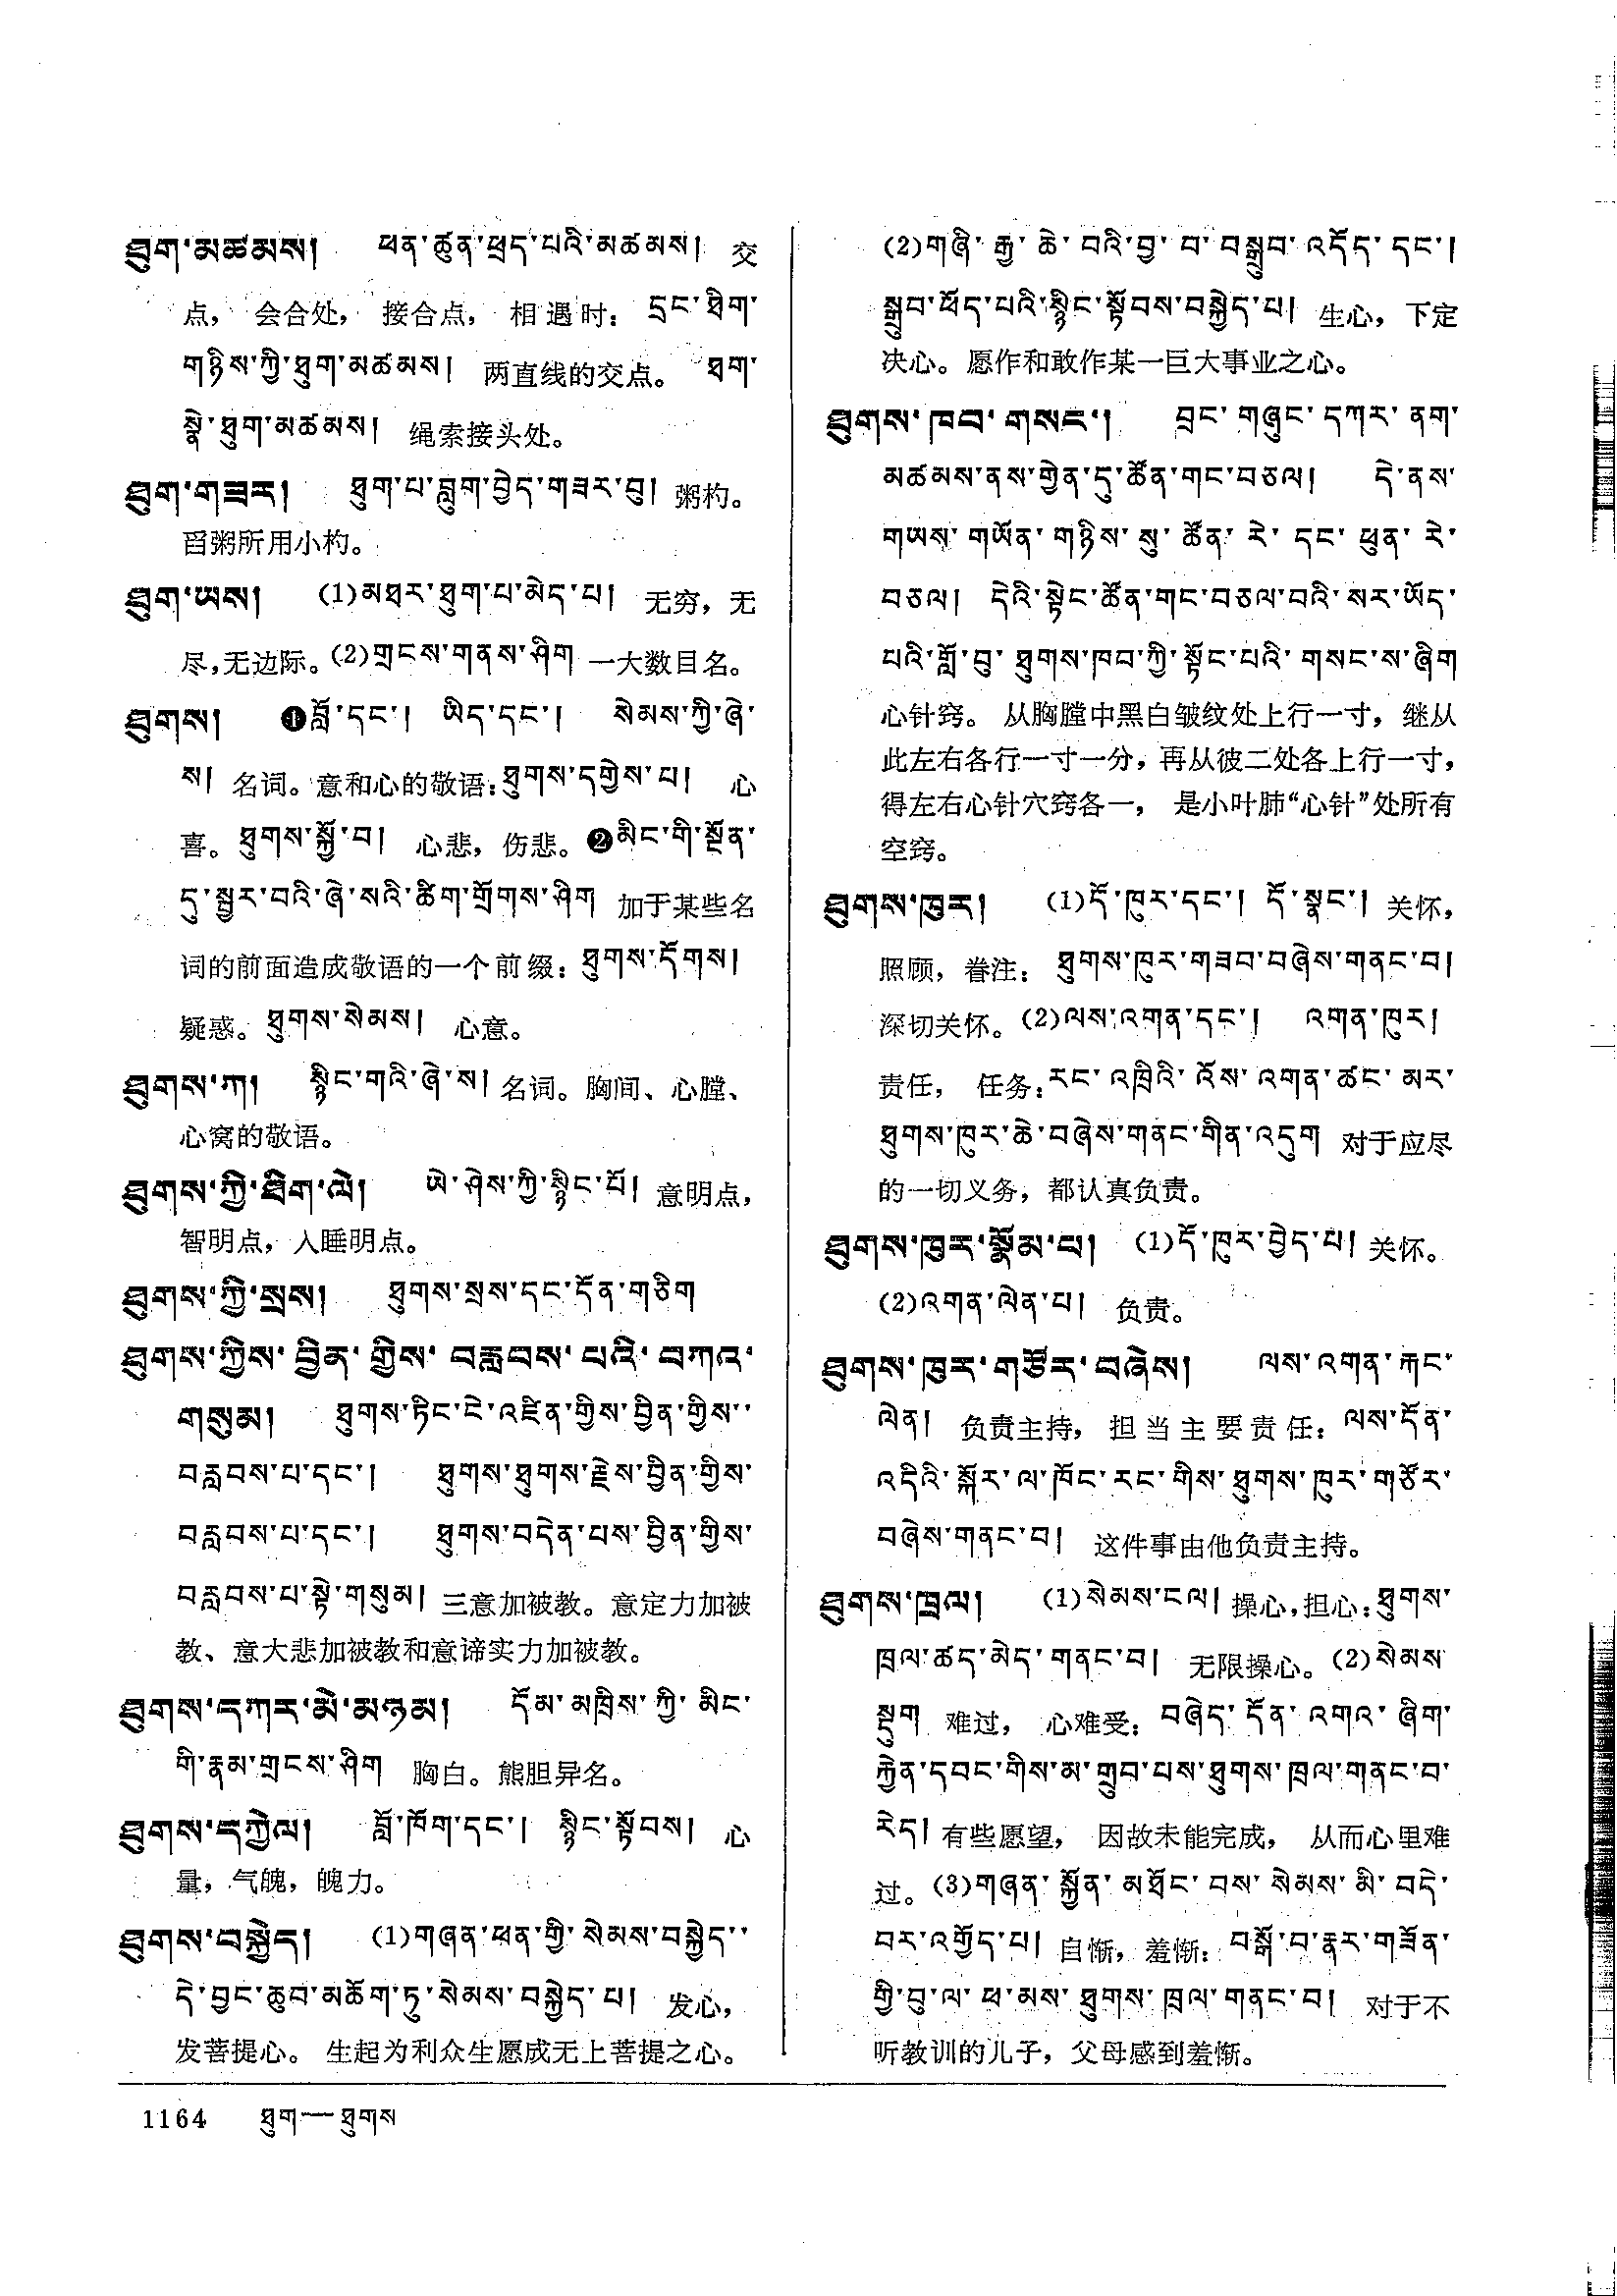 ཐུག་མཚམས། ཕན་ཚུན་ཕྲད་པའི་མཚམས། 交
点， 会合处， 接合点， 相遇时：དྲང་ཐིག་
གཉིས་ཀྱི་ཐུག་མཚམས། 两直线的交点。 ཐག་
སྣེ་ཐུག་མཚམས། 绳索接头处。
ཐུག་གཟར། ཐུག་པ་བླུག་བྱེད་གཟར་བུ། 粥杓。
舀粥所用小杓。
ཐུག་ཡས། (1)མཐར་ཐུག་པ་མེད་པ། 无穷，无
尽，无边际。(2)གྲངས་གནས་ཤིག 一大数目名。
ཐུགས། ❶བློ་དང་། ཡིད་དང་། སེམས་ཀྱི་ཞེ་
ས། 名词。意和心的敬语：ཐུགས་དགྱེས་པ། 心
喜。ཐུགས་སྐྱོ་བ། 心悲，伤悲。❷མིང་གི་སྔོན་
དུ་སྦྱར་བའི་ཞེ་སའི་ཚིག་གྲོགས་ཤིག 加于某些名
词的前面造成敬语的一个前缀：ཐུགས་དོགས།
疑惑。ཐུགས་སེམས། 心意。
ཐུགས་ཀ། སྙིང་གའི་ཞེ་ས། 名词。胸间、心膛、
心窝的敬语。
ཐུགས་ཀྱི་ཐིག་ལེ། ཡེ་ཤེས་ཀྱི་སྙིང་པོ། 意明点，
智明点，入睡明点。
ཐུགས་ཀྱི་སྲས། ཐུགས་སྲས་དང་དོན་གཅིག
ཐུགས་ཀྱིས་བྱིན་གྱིས་བརླབས་པའི་བཀའ་
གསུམ། ཐུགས་ཏིང་ངེ་འཛིན་གྱིས་བྱིན་གྱིས་་
བརླབས་པ་དང་། ཐུགས་ཐུགས་རྗེས་བྱིན་གྱིས་
བརླབས་པ་དང་། ཐུགས་བདེན་པས་བྱིན་གྱིས་
བརླབས་པ་སྟེ་གསུམ། 三意加被教。意定力加被
教、意大悲加被教和意谛实力加被教。
ཐུགས་དཀར་མེ་མཉམ། དོམ་མཁྲིས་ཀྱི་མིང་
གི་རྣམ་གྲངས་ཤིག 胸白。熊胆异名。
ཐུགས་དཀྱེལ། བློ་ཁོག་དང་། སྙིང་སྟོབས། 心
量，气魄，魄力。
ཐུགས་བསྐྱེད། (1)གཞན་ཕན་གྱི་སེམས་བསྐྱེད་་
དེ་བྱང་ཆུབ་མཆོག་ཏུ་སེམས་བསྐྱེད་པ། 发心，
发菩提心。 生起为利众生愿成无上菩提之心。
(2)གཞི་རྒྱ་ཆེ་བའི་བྱ་བ་བསྒྲུབ་འདོད་དང་།
སྒྲུབ་ཕོད་པའི་སྙིང་སྟོབས་བསྐྱེད་པ། 生心，下定
决心。愿作和敢作某一巨大事业之心。
ཐུགས་ཁབ་གསང་། བྲང་གཞུང་དཀར་ནག་
མཚམས་ནས་གྱེན་དུ་ཚོན་གང་བཅལ། དེ་ནས་
གཡས་གཡོན་གཉིས་སུ་ཚོན་རེ་དང་ཕུན་རེ་
བཅལ། དེའི་སྟེང་ཚོན་གང་བཅལ་བའི་སར་ཡོད་
པའི་གློ་བུ་ཐུགས་ཁབ་ཀྱི་སྟོང་པའི་གསང་ས་ཞིག
心针窍。 从胸膛中黑白皱纹处上行一寸，继从
此左右各行一寸一分，再从彼二处各上行一寸，
得左右心针穴窍各一， 是小叶肺“心针”处所有
空窍。
ཐུགས་ཁུར། (1)དོ་ཁུར་དང་། དོ་སྣང་། 关怀，
照顾，眷注：ཐུགས་ཁུར་གཟབ་བཞེས་གནང་བ།
深切关怀。(2)ལས་འགན་དང་། འགན་ཁུར།
责任， 任务：རང་འཁྲིའི་འོས་འགན་ཚང་མར་
ཐུགས་ཁུར་ཆེ་བཞེས་གནང་གིན་འདུག 对于应尽
的一切义务，都认真负责。
ཐུགས་ཁུར་སྣོམ་པ། (1)དོ་ཁུར་བྱེད་པ། 关怀。
(2)འགན་ལེན་པ། 负责。
ཐུགས་ཁུར་གཙོར་བཞེས། ལས་འགན་རྐང་
ལེན། 负责主持， 担当主要责任：ལས་དོན་
འདིའི་སྐོར་ལ་ཁོང་རང་གིས་ཐུགས་ཁུར་གཙོར་
བཞེས་གནང་བ། 这件事由他负责主持。
ཐུགས་ཁྲལ། (1)སེམས་ངལ། 操心，担心：ཐུགས་
ཁྲལ་ཚད་མེད་གནང་བ། 无限操心。(2)སེམས་
སྡུག 难过， 心难受：བཞེད་དོན་འགའ་ཞིག་
རྐྱེན་དབང་གིས་མ་གྲུབ་པས་ཐུགས་ཁྲལ་གནང་བ་
རེད། 有些愿望， 因故未能完成， 从而心里难
过。(3)གཞན་སྐྱོན་མཐོང་བས་སེམས་མི་བདེ་
བར་འགྱོད་པ། 自惭，羞惭：བསྒོ་བ་རྣར་གཟོན་
གྱི་བུ་ལ་ཕ་མས་ཐུགས་ཁྲལ་གནང་བ། 对于不
听教训的儿子，父母感到羞惭。
1164 ཐུག—ཐུགས